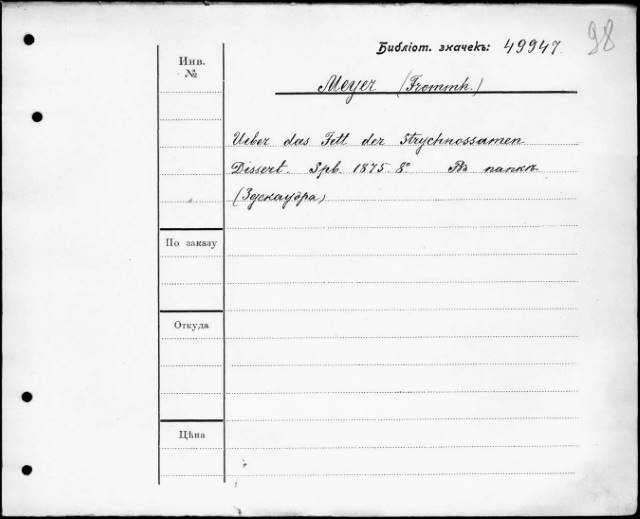 Библіот. значекъ: 49947.
98
Инв.
№
Meyer (Frommh.)
Ueber das Fett der Strychnossamen
Dissert. Spb. 1875. 8º. Въ папкѣ
(Здекаура)
По заказу
Откуда
Цѣна